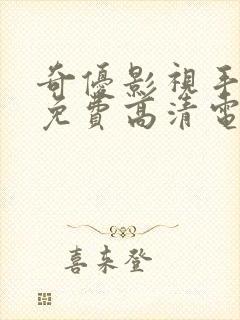 奇優影視手
免費高清電
喜来登